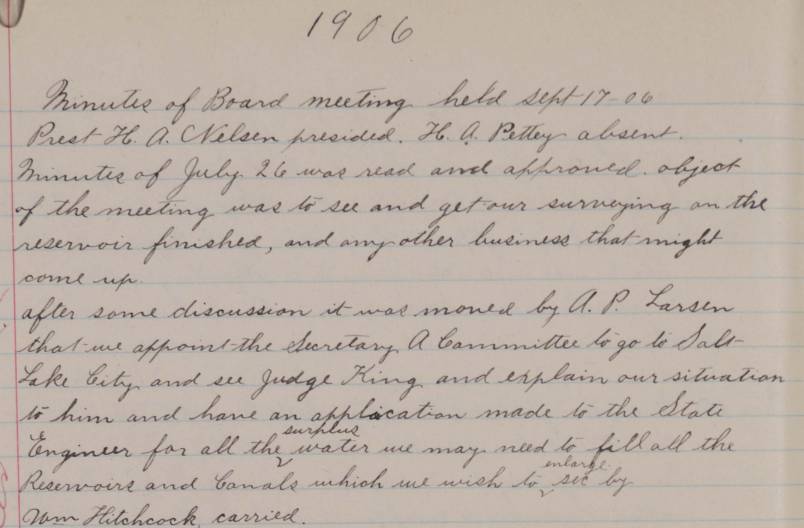 1906
Minutes of Board meeting held Sept 17-06
Prest H. A. Nelsen presided. H. A. Pettey absent.
Minutes of July 26 was read and approved. object
of the meeting was to see and get our surveying on the
reservoir finished, and any other business that might
come up.
after some discussion it was moved by A. P. Larsen
that we appoint the Secretary A Committee to go to Salt
Lake City and see Judge King and explain our situation
to him and have an application made to the State
Engineer for all the surplus water we may need to fill all the
Reservoirs and Canals which we wish to enlarge sec by
Wm Hitchcock carried.